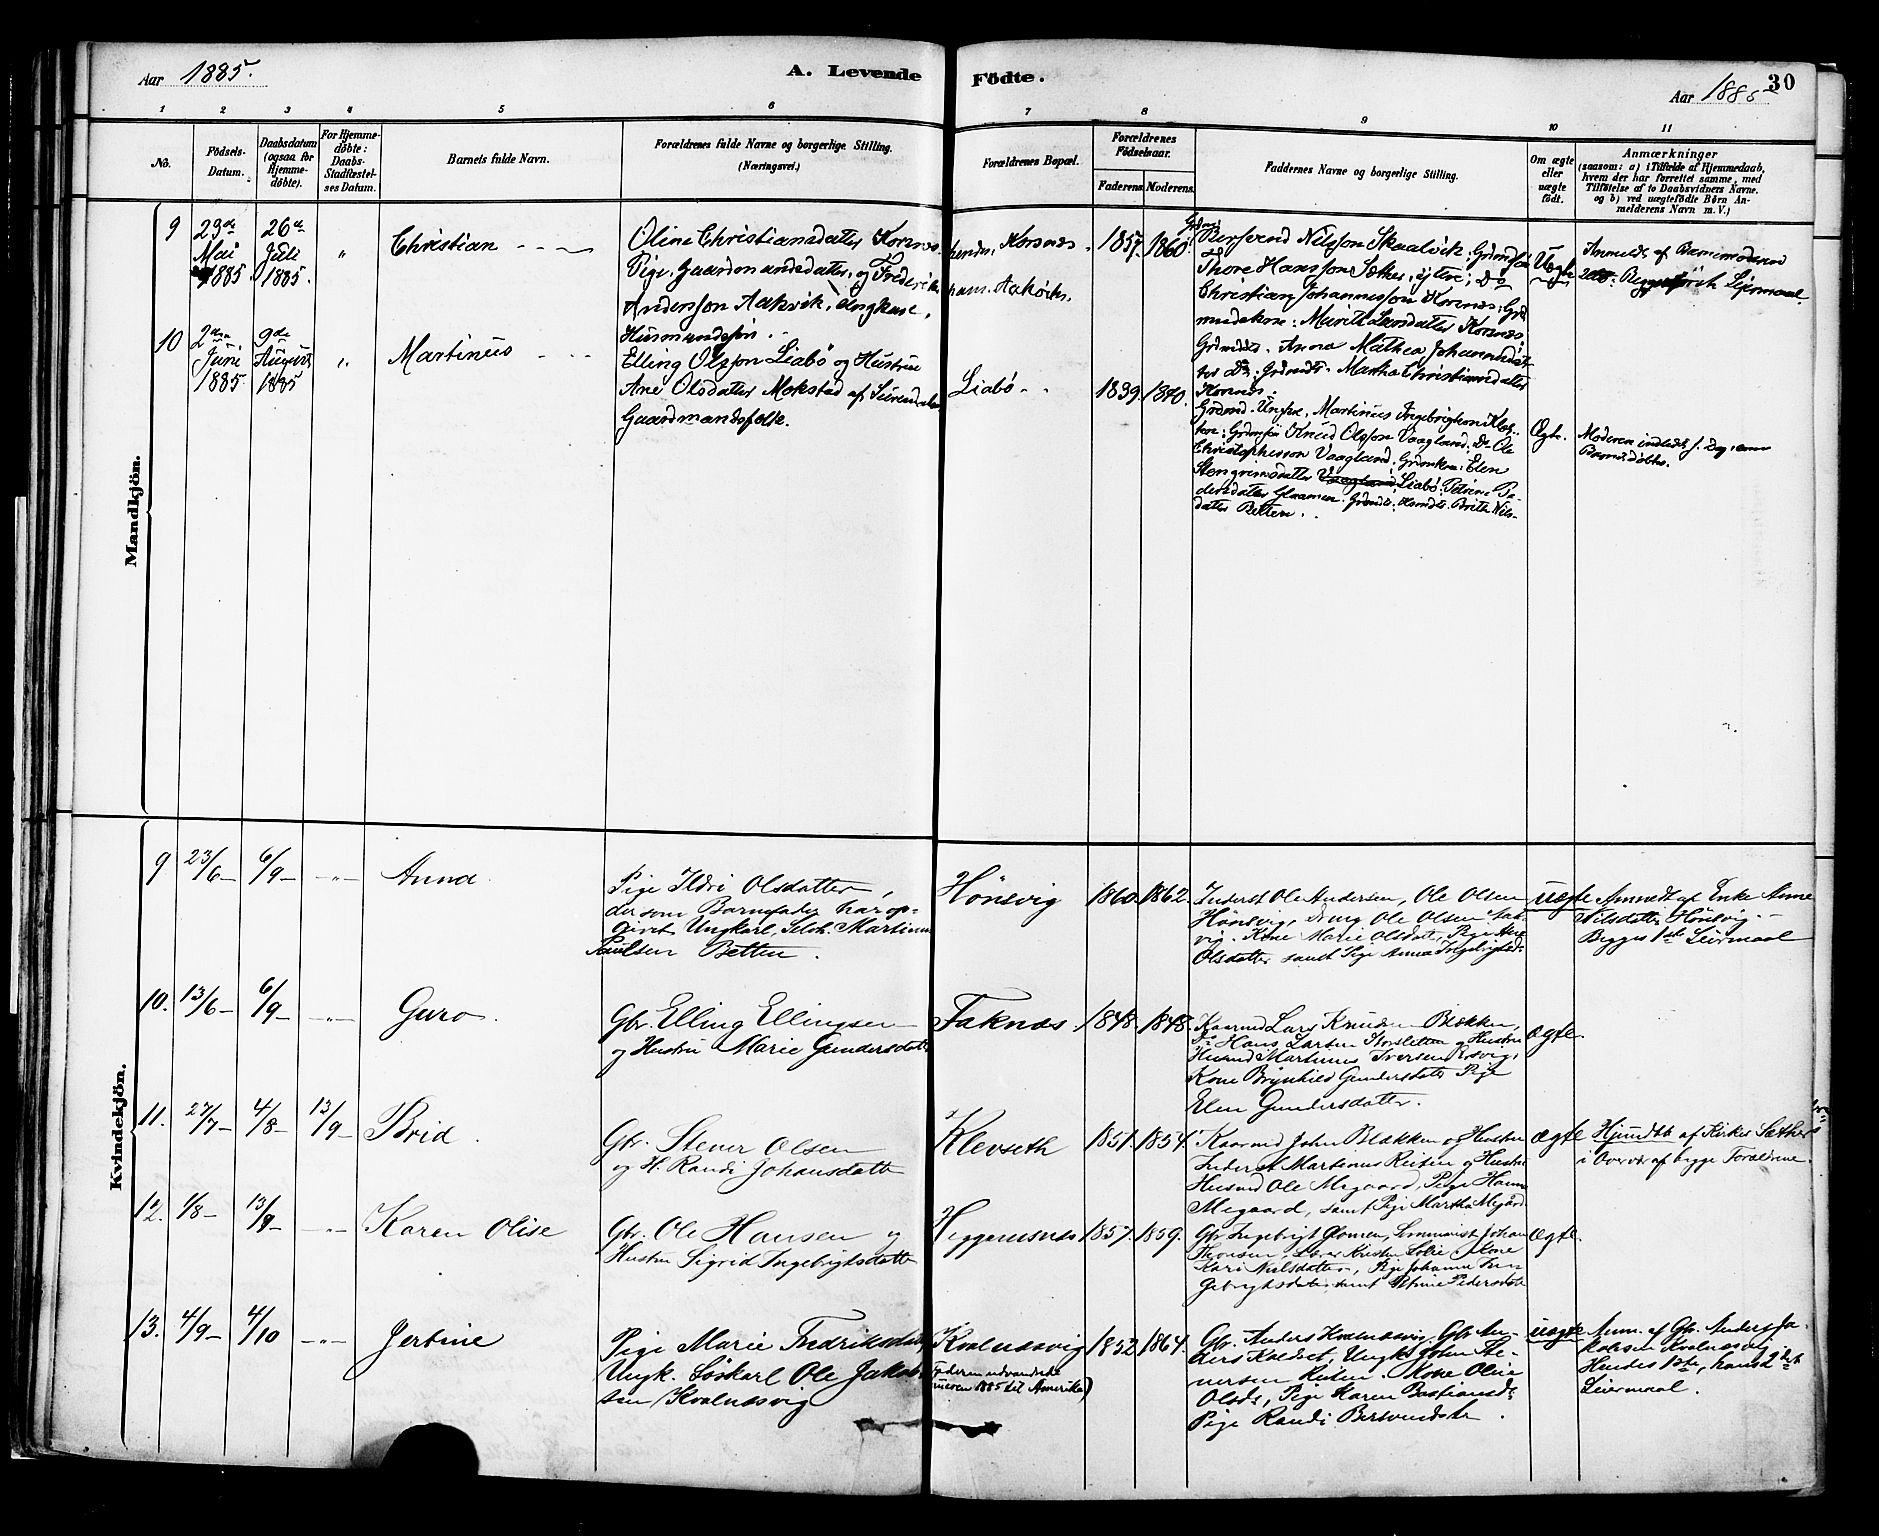 Aar 1885.
A. Levende Födte.
Aar 1885
30
1 2 3 4 5 6 7 8 9 10 11
No.
Födsels-
Datum.
Daabsdatum
(ogsaa for
Hjemme-
döbte).
For Hjemme-
döbte:
Daabs-
Stadfæstel-
ses Datum.
Barnets fulde Navn.
Forældrenes fulde Navne og borgerlige Stilling.
(Næringsvei.)
Forældrenes Bopæl.
Forældrenes
Födselsaar.
Faderens. Moderens.
Faddernes Navne og borgerlige Stilling.
Om ægte
eller
uægte
födt.
Anmærkninger
(saasom: a) i Tilfælde af Hjemmedaab,
hvem der har forrettet samme, med
Tilföielse af to Daabsvidners Navne.
og b) ved uægtefödte Börn An-
melderens Navn m. V.)
Mandkjön.
9
23de
Mai
1885
26de
Juli
1885.
"
Christian
Oline Christiansdatter Korsnes
Pige, Gaardmandsdatter, og Frederik
Andersson Aakvik, Ungkarl,
Husmandssön.
hendes Korsnes.
hans. Aakvik.
1857. 1860.
Bersvend Nilsson Skaalvik: Grdmssön
Thore Hansson Sæther, ytre; Do
Christian Johannesson Korsnes: Grd
mandskone: Marith Larsdatter Korsnes:
Anna Mathea Johannesdat-
ter Do: Martha Christiansdatter
Korsnes.
Uægte
Anmeldt af Barnemoderen
Leiermaal.
10
2den
Juni
1885.
9de
August
1885
"
Martinus
Elling Olsson Liabö og Hustru
Ane Olsdatter Mokstad af Surendalen
Gaardmandsfolk.
Liabö
1839. 1840.
Martinus Ingebrigtson
Knud Olsson Vaagland: Do Ole
Christophersson Vaagland: Elen
Stengrimsdatter Liabö: Petrine Pe-
dersdatter Glaamen. Brith Nils-
datter Betten.
Ægte.
Moderen indledt s. Dag som
Barnet döbtes.
Kvindekjön.
9
23/6
6/9
"
Anna.
Pige Ildri Olsdatter,
dersom Barnefader har op-
givet Ungkarl, Selvh. Martinus
Paulsen Betten.
Hönsvig
1860. 1862.
Inderst Ole Andersen, Ole Olsen
Hönsvig, Ung Ole Olsen Aak-
vig. Kone Marie Olsdatter, Pige
Olsdatter samt Pige Anna Ingebrigtsd.
uægte
Anmeldt af Enke Anne
Nilsdatter Hönsvig.
Begges 1ste Leiermaal
10.
13/6
6/9
"
Guro.
Gbr. Elling Ellingsen
og Hustru Marie Gundersdatter
Faknæs.
1848. 1848.
Kaarmd Lars Knudsen Blekken,
Do Hans Larsen Storsletten og Hustru
Husmd Martinus Iversen
Kone Brynhild Gundersdatter Pige
Elen Gundersdatter.
ægte.
11.
27/7
4/8
13/9
Brid.
Gbr. Stener Olsen
og H. Randi Johansdatter
Klevseth
1851. 1854.
Kaarmd John Blekken og Hustru
Inderst Martinus Reiten og Hustru
Husmd Ole Megaard, Pige Hanna
Megaard, samt Pige Martha Megård
ægte
Hjmdbt. af Kirkes. Sæther
i Overvær af begge Forældrene.
12.
1/8
13/9
"
Karen Olise
Gbr. Ole Hansen og
Hustru Sigrid Ingebrigtsdatter
Heggemsnes
1857. 1859.
Gbr. Ingebrigt Glomen, Johan
Thorsen, Lærer Kristen Solie, Kone
Kari Nielsdatter, Pige Johanna In-
gebrigtsdatter, samt Petrine Pedersdatter
ægte.
13.
4/9
4/10
"
Jertine
Pige Marie Fredriksdatter
Ungk. Löskarl Ole Jakob-
sen Kvalnæsvig
Kvalnæsvig
(Faderen udvandrede
1885 til Amerika)
1852 1864.
Gbr. Anders Kvalnæsvig. Gbr An-
ders Ungk. John Ste-
nersen Reiten. Kone Oline
Olsdr, Pige Karen Bastiansdr
Pige Randi Bersvendsdr.
uægte
Anm. af Gbr. Anders Ja-
kobsen Kvalnæsvig
Hendes 1ste, hans 2det
Leiermaal.